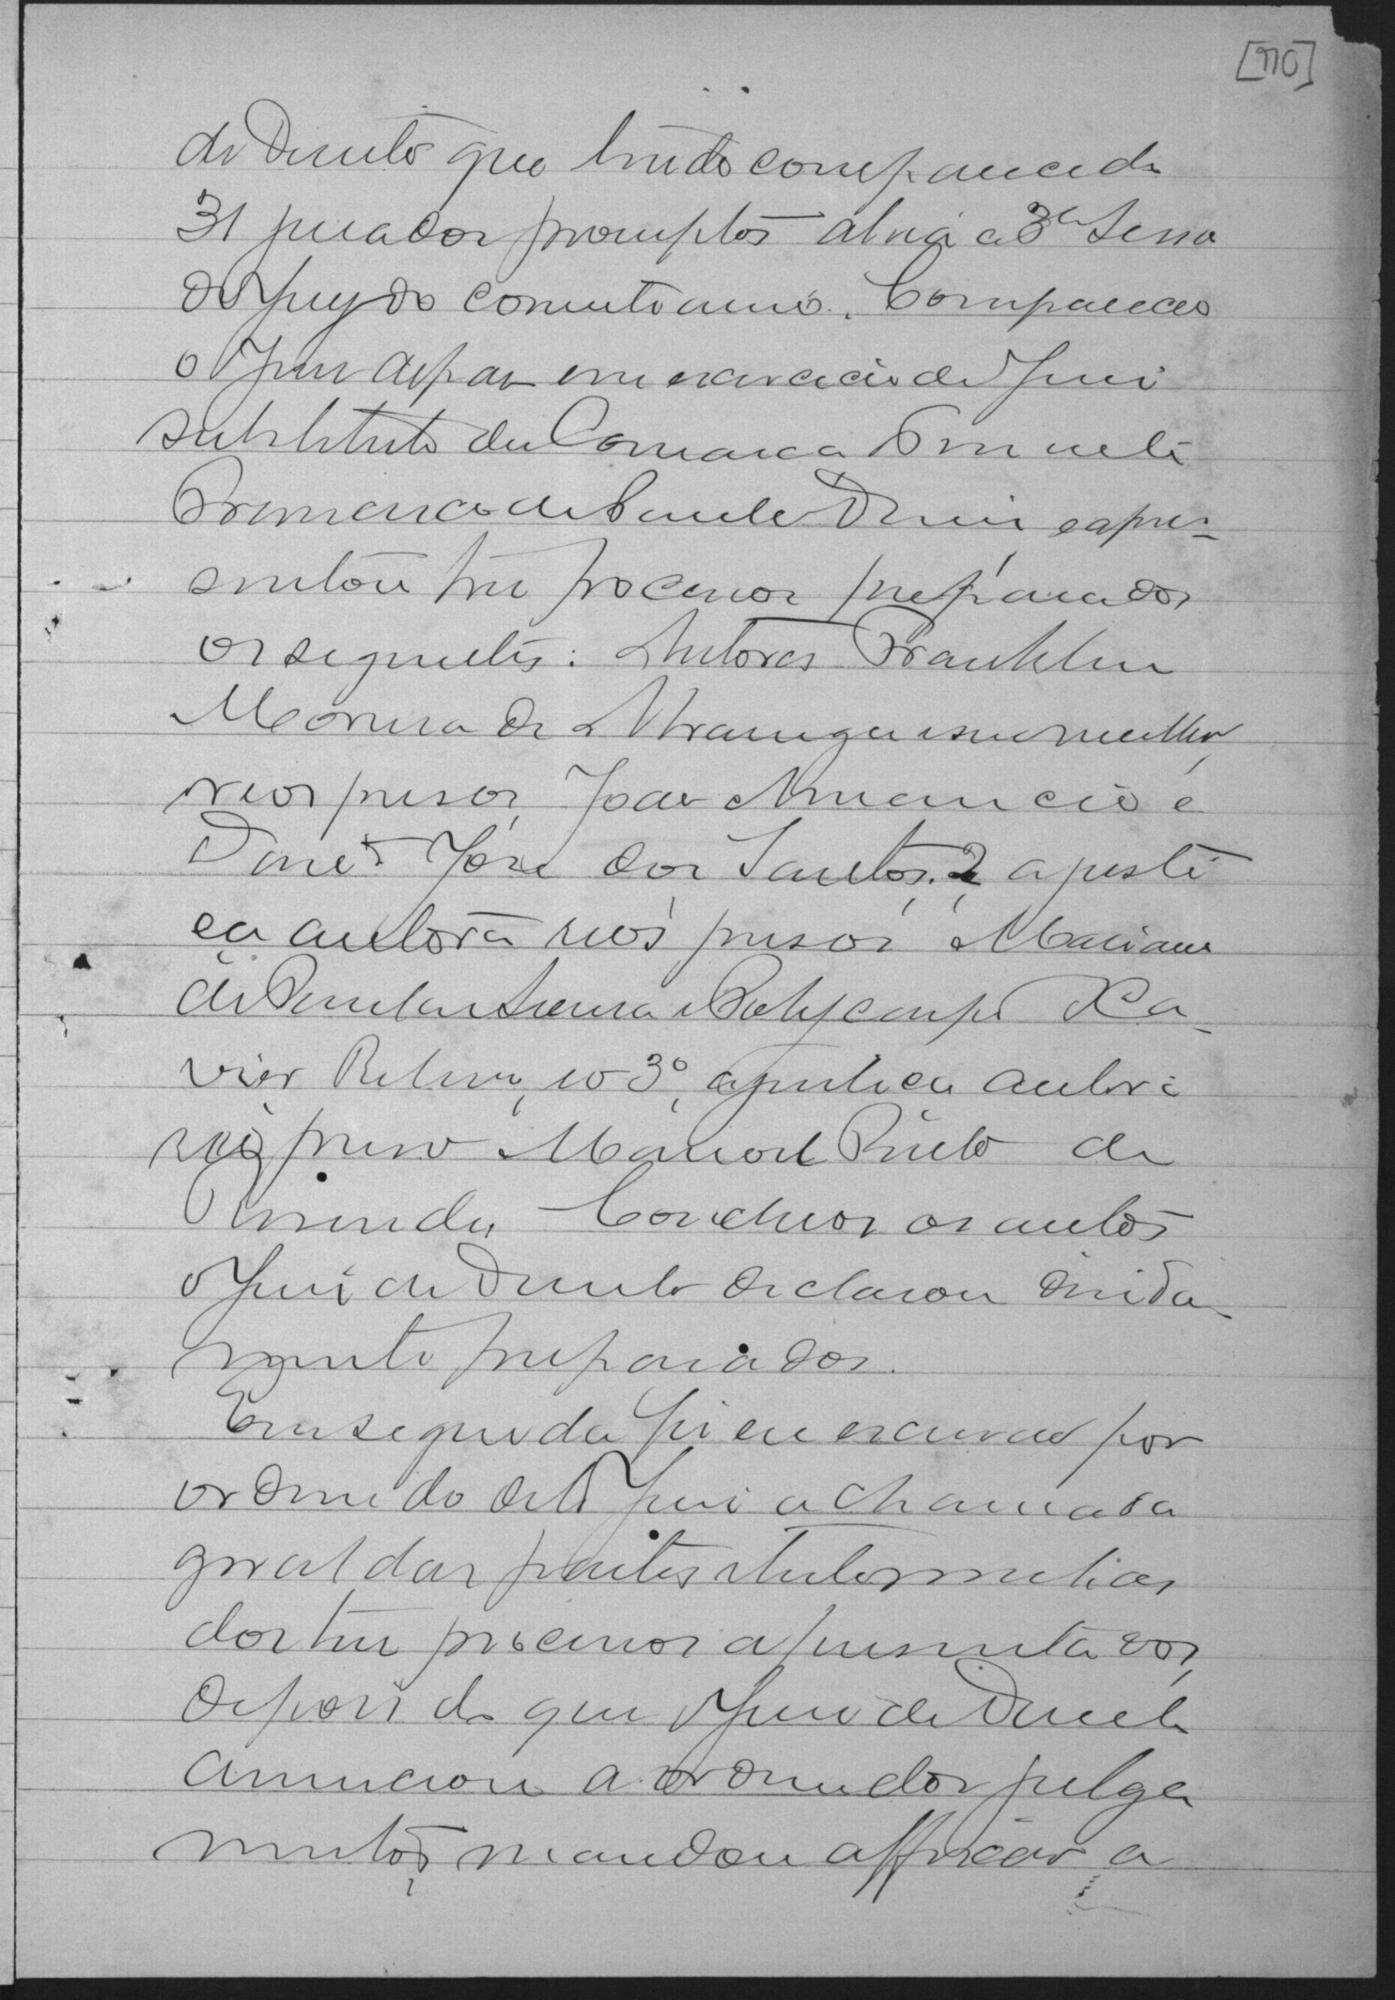 [110]
de Direito que tendo comparecido
31 jurados promptos abria a 3ª Sessão
do Jury do corrente anno. Compareceo
o Juiz de paz em exercicio de Juiz
substituto da Comarca
Francisco de Paula e apre-
sentou tres processos preparados
os seguintes: Autores Franklin
Moreira de e sua mulher,
reos presos, João Amancio e
José dos Santos, 2º a justiça
e a autora reos presos Mariano
de Paula Policarpo Xa-
vier e o 3º, a justiça autora
reo preso Manoel Pinto de
Conclusos os autos
o Juiz de Direito declarou devida
mente preparados.
Em seguida fiz eu escrivão por
ordem do dito Juiz a chamada
geral das partes e testemunhas
dos tres processos apresentados,
depois do que o Juiz de Direito
annunciou a ordem dos julga
mentos, mandou affixar a